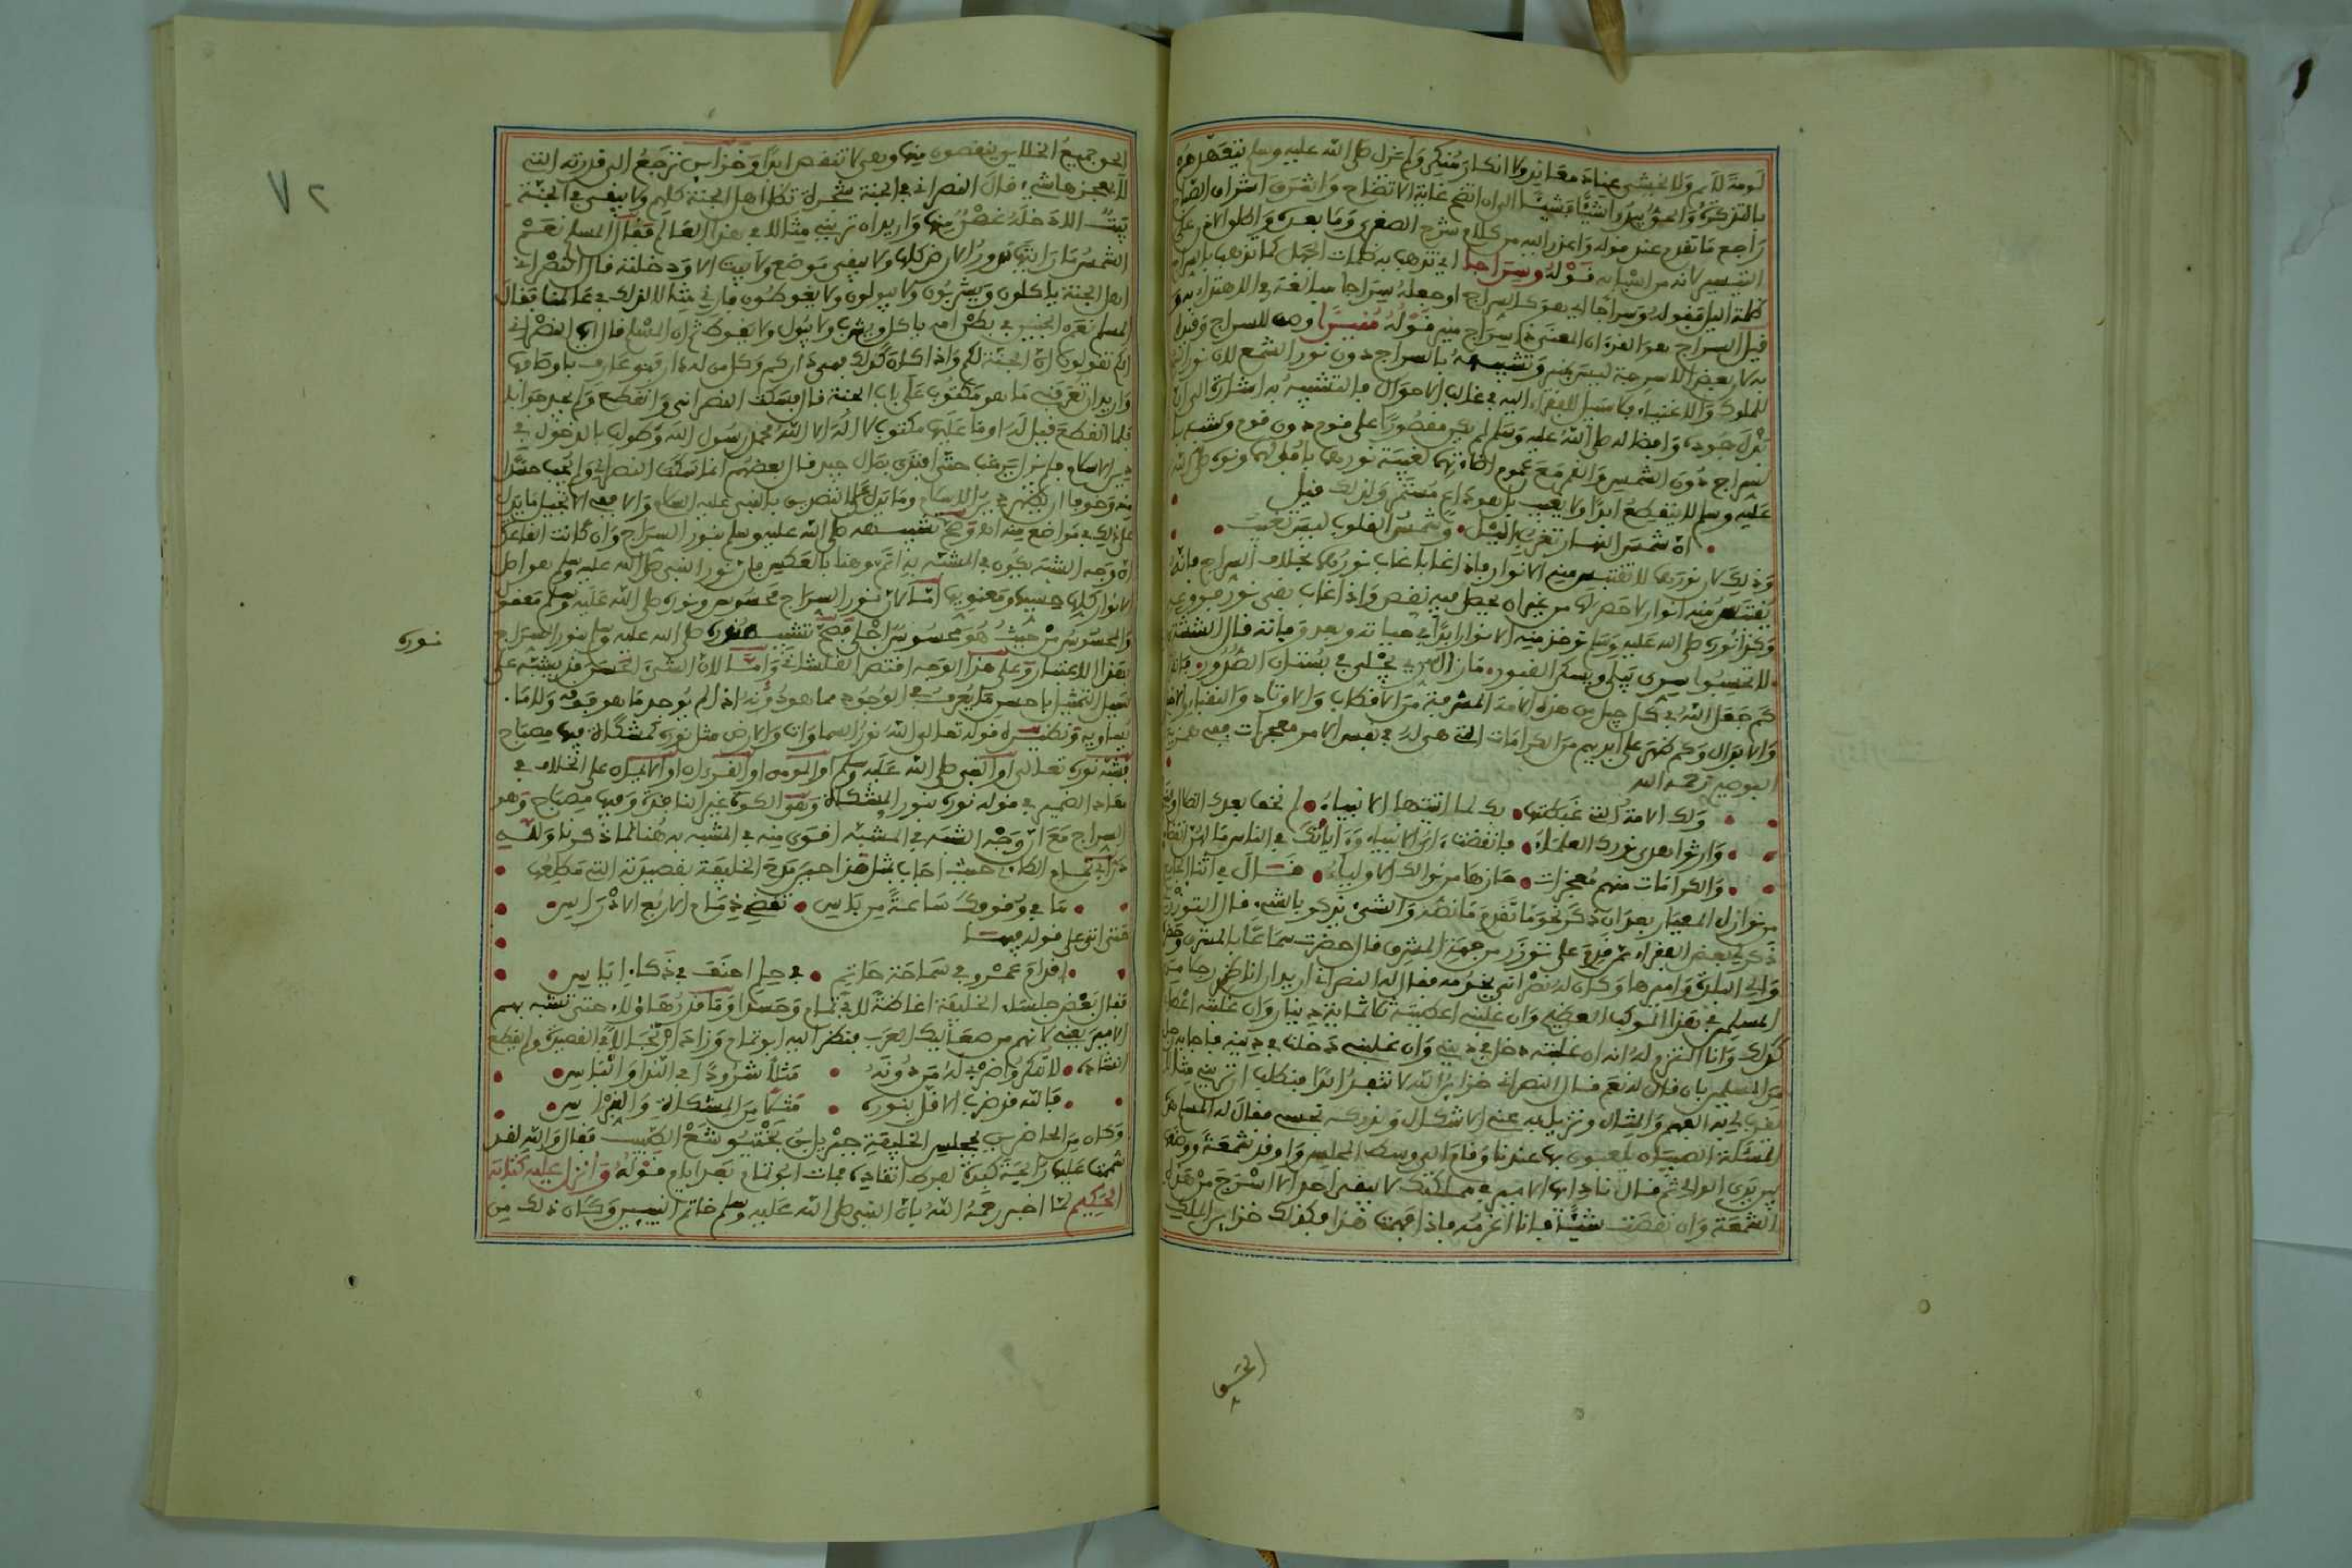 لومة لائم ولا يخشى عناد معاند ولا انكار منكر ولم يزل صلى الله عليه وسلم يتعهدهم
بالتذكرة والحق يبدوا شيئا فشيئا الى ان اتضح غاية الاتضاح واشرق اشراق الصباح
راجع ما تقدم عند قوله واعزز اليه من كلام شرح الصغرى وما بعده
التفسير لانه من اشيا به قوله وسراجا اي تذهب به ظلمات الجهل كما تذهب بالسراج
ظلمة اليل فقوله وسراجا اي هو كالسراج او جعله سراجا مبالغة في الاهتداء به و
قيل السراج هو القران المعنى ذا سراج منير قوله منيرا وصف للسراج وقيد
به لان بعض الاسرجة ليست بمنيرة وتشبيهه بالسراج دون نور الشمع لان نور الشمع
للملوك والاغنياء ولا سبيل للفقراء اليه في غالب الاحوال فالتشبيه به اشارة الى ان
بذل جوده وافضاله صلى الله عليه وسلم لم يكن مقصورا على قوم دون قوم وشبه با
لسراج دون الشمس والقمر مع عموم اضاءتهما لغيبة نورهما بافولهما ونوره صلى الله
عليه وسلم لا ينقطع ابدا ولا يغيب بل هو دائم مستمر ولذلك قيل
ان شمس النهار تغرب باليل • وشمس القلوب ليست تغيب
وذلك لان نورهما لا تقتبس منه الانوار فاذا غابا غاب نورهما بخلاف السراج فانه
يقتبس منه انوار لا حصر لها من غير ان يحصل فيه نقص واذا غاب بقي نور فروعه
وكذا نوره صلى الله عليه وسلم تؤخذ منه الانوار ابدا في حياته وبعد وفاته قال الششتري
لا تحسبوا سري يبلى ويسكن القبور • ما زال سري يجلى في بستان الصدور • فانظر
كم جعل الله في كل جيل من هذه الامة المشرفة من الاقطاب والاوتاد والنقباء والا
والابدال وكم ظهر على ايديهم من الكرامات التي هي له في نفس الامر معجزات
البوصيري رحمه الله
ولك الامة التي غبطتها • بك لما اتيتها الانبياء • لم نخف بعدك الضلال و
وارثوا هدى نورك العلماء • فانقضت اي الانبياء وءاياتك في الناس ما لهن انقضاء
والكرامات منهم معجزات • حازها من نوالك الاولياء • قال في اثناء
من نوازل المعيار بعد ان ذكر نحو ما تقدم ما نصه والشيء يذكر بالشيء قال
ذكر لي بعض الفقراء ممن قدم على توزر من جهة المشرق قال حضرت سماعا بالمشرق
والي البلد واميرها وكان له نصراني يخدمه فقال له النصراني اريد ان اناظر رجلا من
المسلمين في هذا الموكب العظيم وان غلبني اعطيته ثلاثمائة دينار وان غلبته
كذلك وانا التزم له انه ان غلبته دخل في ديني وان غلبني دخلت في دينه فاجابه رجل
من المسلمين بان قال له نعم قال النصراني خزائن الله لا تنفد ابدا فنطلب ان تريني مثالا
يقرب لي به الفهم والمثال وتزيل به عني الاشكال
المسئلة الصبيان يلعبون بها عندنا وقام الى وسط المجلس واوقد شمعة ووضعها
بين يدي الوالي ثم قال نادي ايها الامير في مملكتك لا يبقى احد الا اسرج من هذه
الشمعة وان نقصت شيئا فانا اغرمه فاذا فهمت هذا فكذلك خزائن الملك
الحق
٧٢
الحق جميع الخلايق ينفقون منها وهي لا تنقص ابدا وخزائن ترجع الى قدرته التي
لا يعجزها شيء قال النصراني في الجنة شجرة تظل اهل الجنة كلهم ولا يبقى في الجنة
بيت الا دخله غصن منها واريد ان تريني مثالا في هذا العالم فقال المسلم نعم
الشمس ما رايتها تدور الارض كلها ولا يبقى موضع ولا بيت الا ودخلته قال النصراني
اهل الجنة ياكلون ويشربون ولا يبولون ولا يغوطون فارني مثالا لذلك في عالمنا فقال
المسلم نعم الجنين في بطن امه ياكل ويشرب ولا يبول ولا يغوط ثم ان المسلم قال ايها النصراني
انكم تقولون ان الجنة لكم واذا كان كذلك فهي داركم وكل من له دار فهو عارف باوصافها
واريد ان تعرفني ما هو مكتوب على باب الجنة قال فسكت النصراني وانقطع ولم يجد جوابا
فلما انقطع قيل له او ما عليها مكتوب لا اله الا الله محمد رسول الله وطولب بالدخول في
دين الاسلام فلم يزل يرغب حتى افتدى بمال جيد قال بعضهم انما سكت النصراني ولم يجب حسدا
منه وخوفا ان يظهر دين الاسلام وما يدل على التصريح بالنبي عليه السلام والا ففي الانجيل ما يدل
على ذلك في مواضع منه اه وصح تشبيهه صلى الله عليه وسلم بنور السراج وان كانت القاعدة
ان وجه الشبه يكون في المشبه به اتم وهنا بالعكس فان نور النبي صلى الله عليه وسلم هو اصل
الانوار كلها حسيها ومعنويها امـا لان نور السراج محسوس ونوره صلى الله عليه وسلم معقول
والمحسوس من حيث هو محسوس اجلى فصح تشبيه نوره صلى الله عليه وسلم بنور السراج
نوره
بهذا الاعتبار وعلى هذا الوجه اقتصر القلشاني وامـا لان الشيء الحسن قد يشبه على
سبيل التمثيل باحسن ما يعرف في الوجود مما هو دونه اذ لم يوجد ما هو فوقه ولا ما
يساويه ونظيره قوله تعالى الله نور السماوات والارض مثل نوره كمشكاة فيها مصباح
فشبه نوره تعالى او النبي صلى الله عليه وسلم او المومن او القرءان او الايمان على الخلاف في
معاد الضمير في قوله نوره بنور المشكاة وهو الكوة غير النافذة وفيها مصباح وهو
السراج مع ان وجه الشبه في المشبه اقوى منه في المشبه به هنا لما ذكرنا ولله
در ابي تمام الطائي حيث اجاب بمثل هذا حين مدح الخليفة بقصيدته التي مطلعها
ما في وقوفك ساعة من باس • تقضي ذمام الاربع الادراس
حتى اتى على قوله فيها
اقدام عمرو في سماحة حاتم • في حلم احنف في ذكاء اياس
فقال بعض جلساء الخليفة اغاضة لابي تمام وحسدا وما قدر هاؤلاء حتى تشبه بهم
الامير يعني لانهم من صعاليك العرب فنظر اليه ابو تمام وزاد ارتجالا في القصيدة ولم يقطع
انشاده • لا تنكروا ضربي له من دونه • مثلا شرودا في الندا والباس
فالله قد ضرب الاقل لنوره • مثلا من المشكاة والنبراس
وكان من الحاضرين بمجلس الخليفة جبريل بن بختيشوع الطبيب فقال والله لقد
شممت عليها رايحة كبده لفرط اتقاده فمات ابو تمام بعد ايام قوله وانزل عليه كتابه
الحكيم لما اخبر رحمه الله بان النبي صلى الله عليه وسلم خاتم النبيين وكان ذلك من